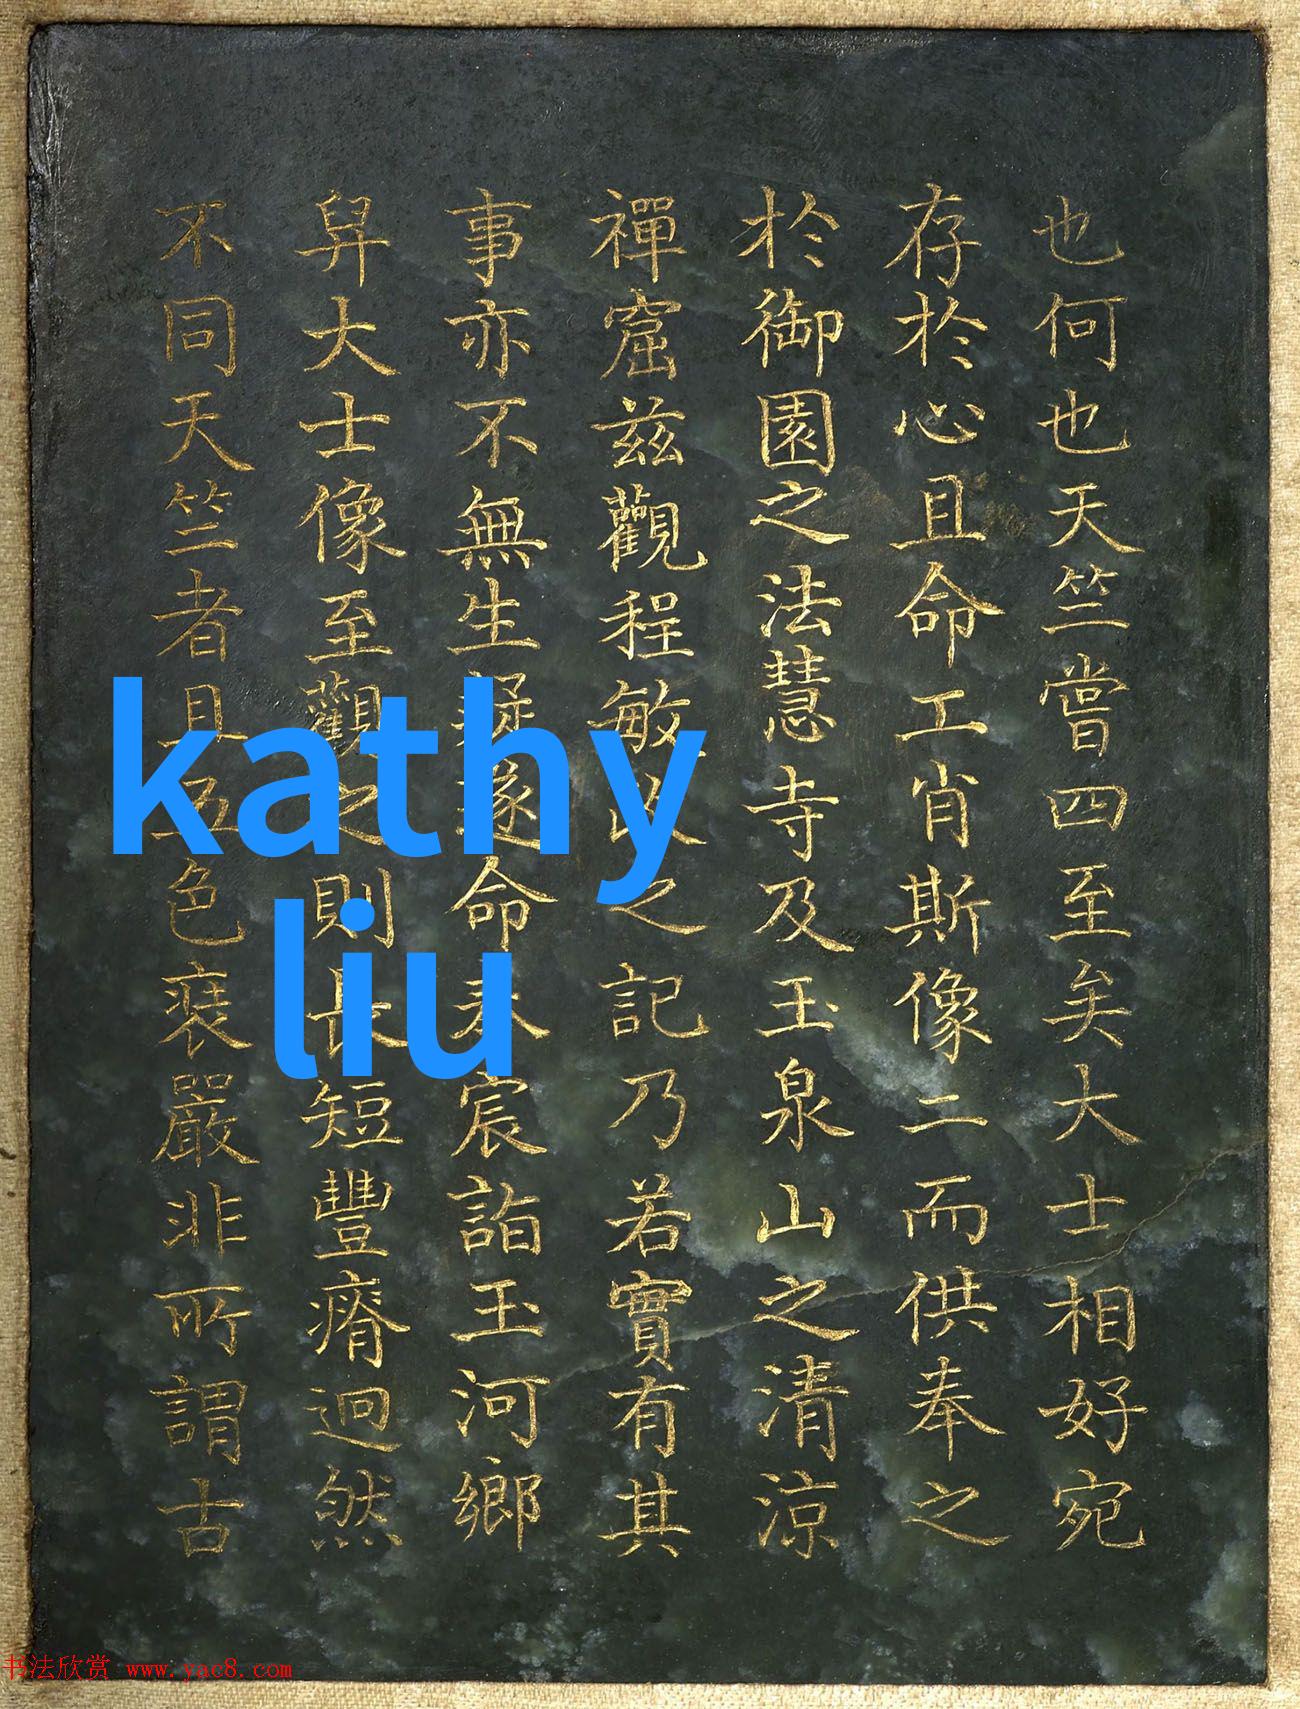 也何也天竺嘗四至矣大士相好宛
存於心且命工肖斯像二而供奉之
於御園之法慧寺及玉泉山之清涼
禪窟茲觀程敏政之記乃若實有其
事亦不無生疑遂命奉宸詣玉河鄉
舁大士像至觀之則長短豐瘠逈然
不同天竺者具五色裝嚴非所謂古
kathy
liu
书法欣赏 www.yac8.com